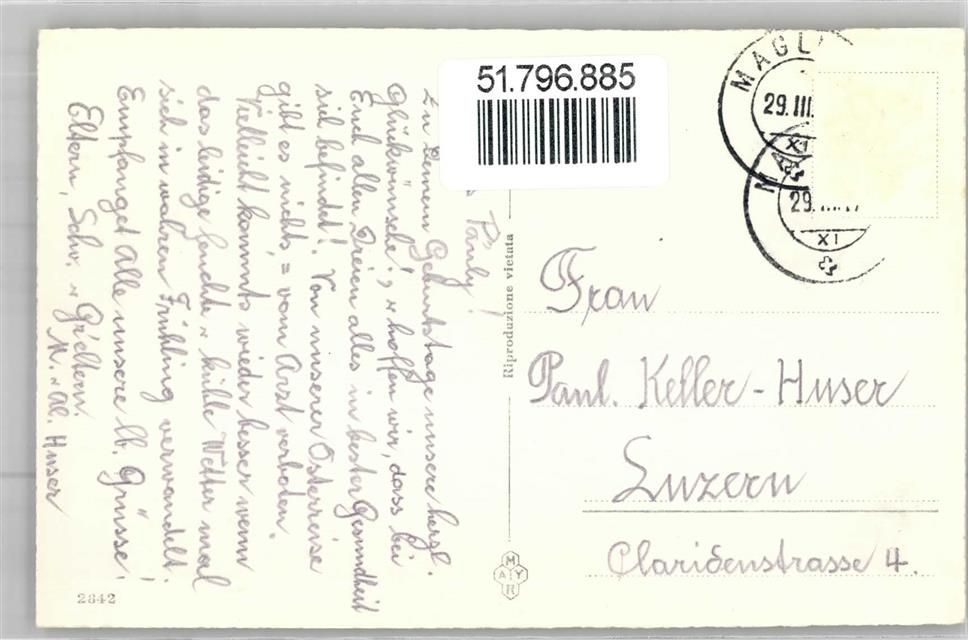 51.796.885
MAGLI
29.III.
XI
MA
29.III.
XI
Pauly!
Zu Deinem Geburtstage unsere herzl.
Glükwünsche!, & hoffen wir, dass bei
Euch allen Dreien alles in bester Gesundheit
sich befindet! Von unserer Osterreise
gibt es nichts, = vom Arzt verboten.
Vielleicht kommts wieder besser wenn
das leidige feuchte & kühle Wetter mal
sich in wahren Frühling verwandelt.
Empfanget Alle unsere lb. Grüsse!
Eltern, Schw. & Gr'eltern.
M. & Al. Huser
Riproduzione vietata
Frau
Paul. Keller-Huser
Luzern
Claridenstrasse 4.
MAYR
2842